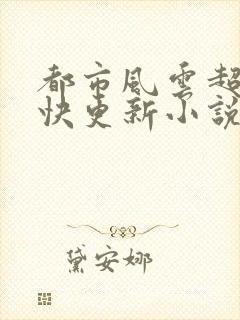 都市風雲超
快更新小說
黛安娜